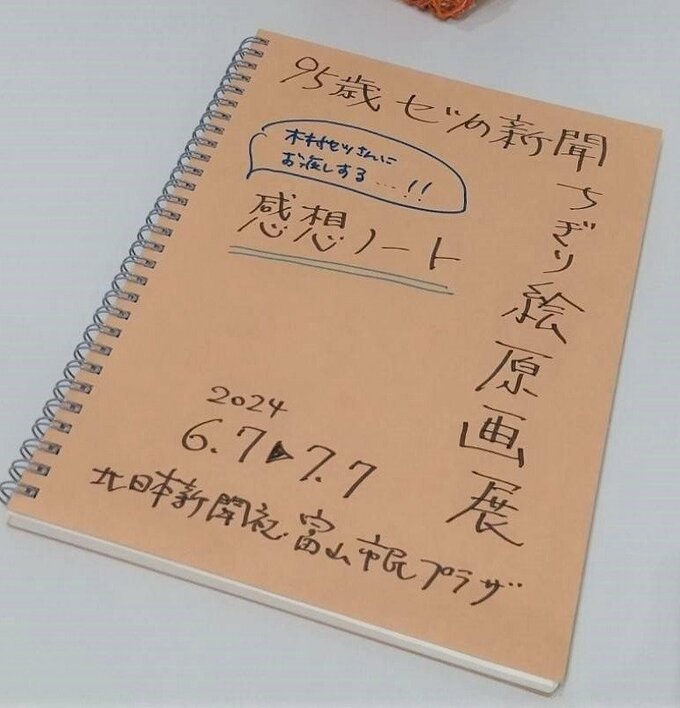 95歳セツの新聞
ちぎり絵原画展
木村セツさんに
お渡しする…!!
感想ノート
2024
6.7▶7.7
北日本新聞社・富山市民プラザ